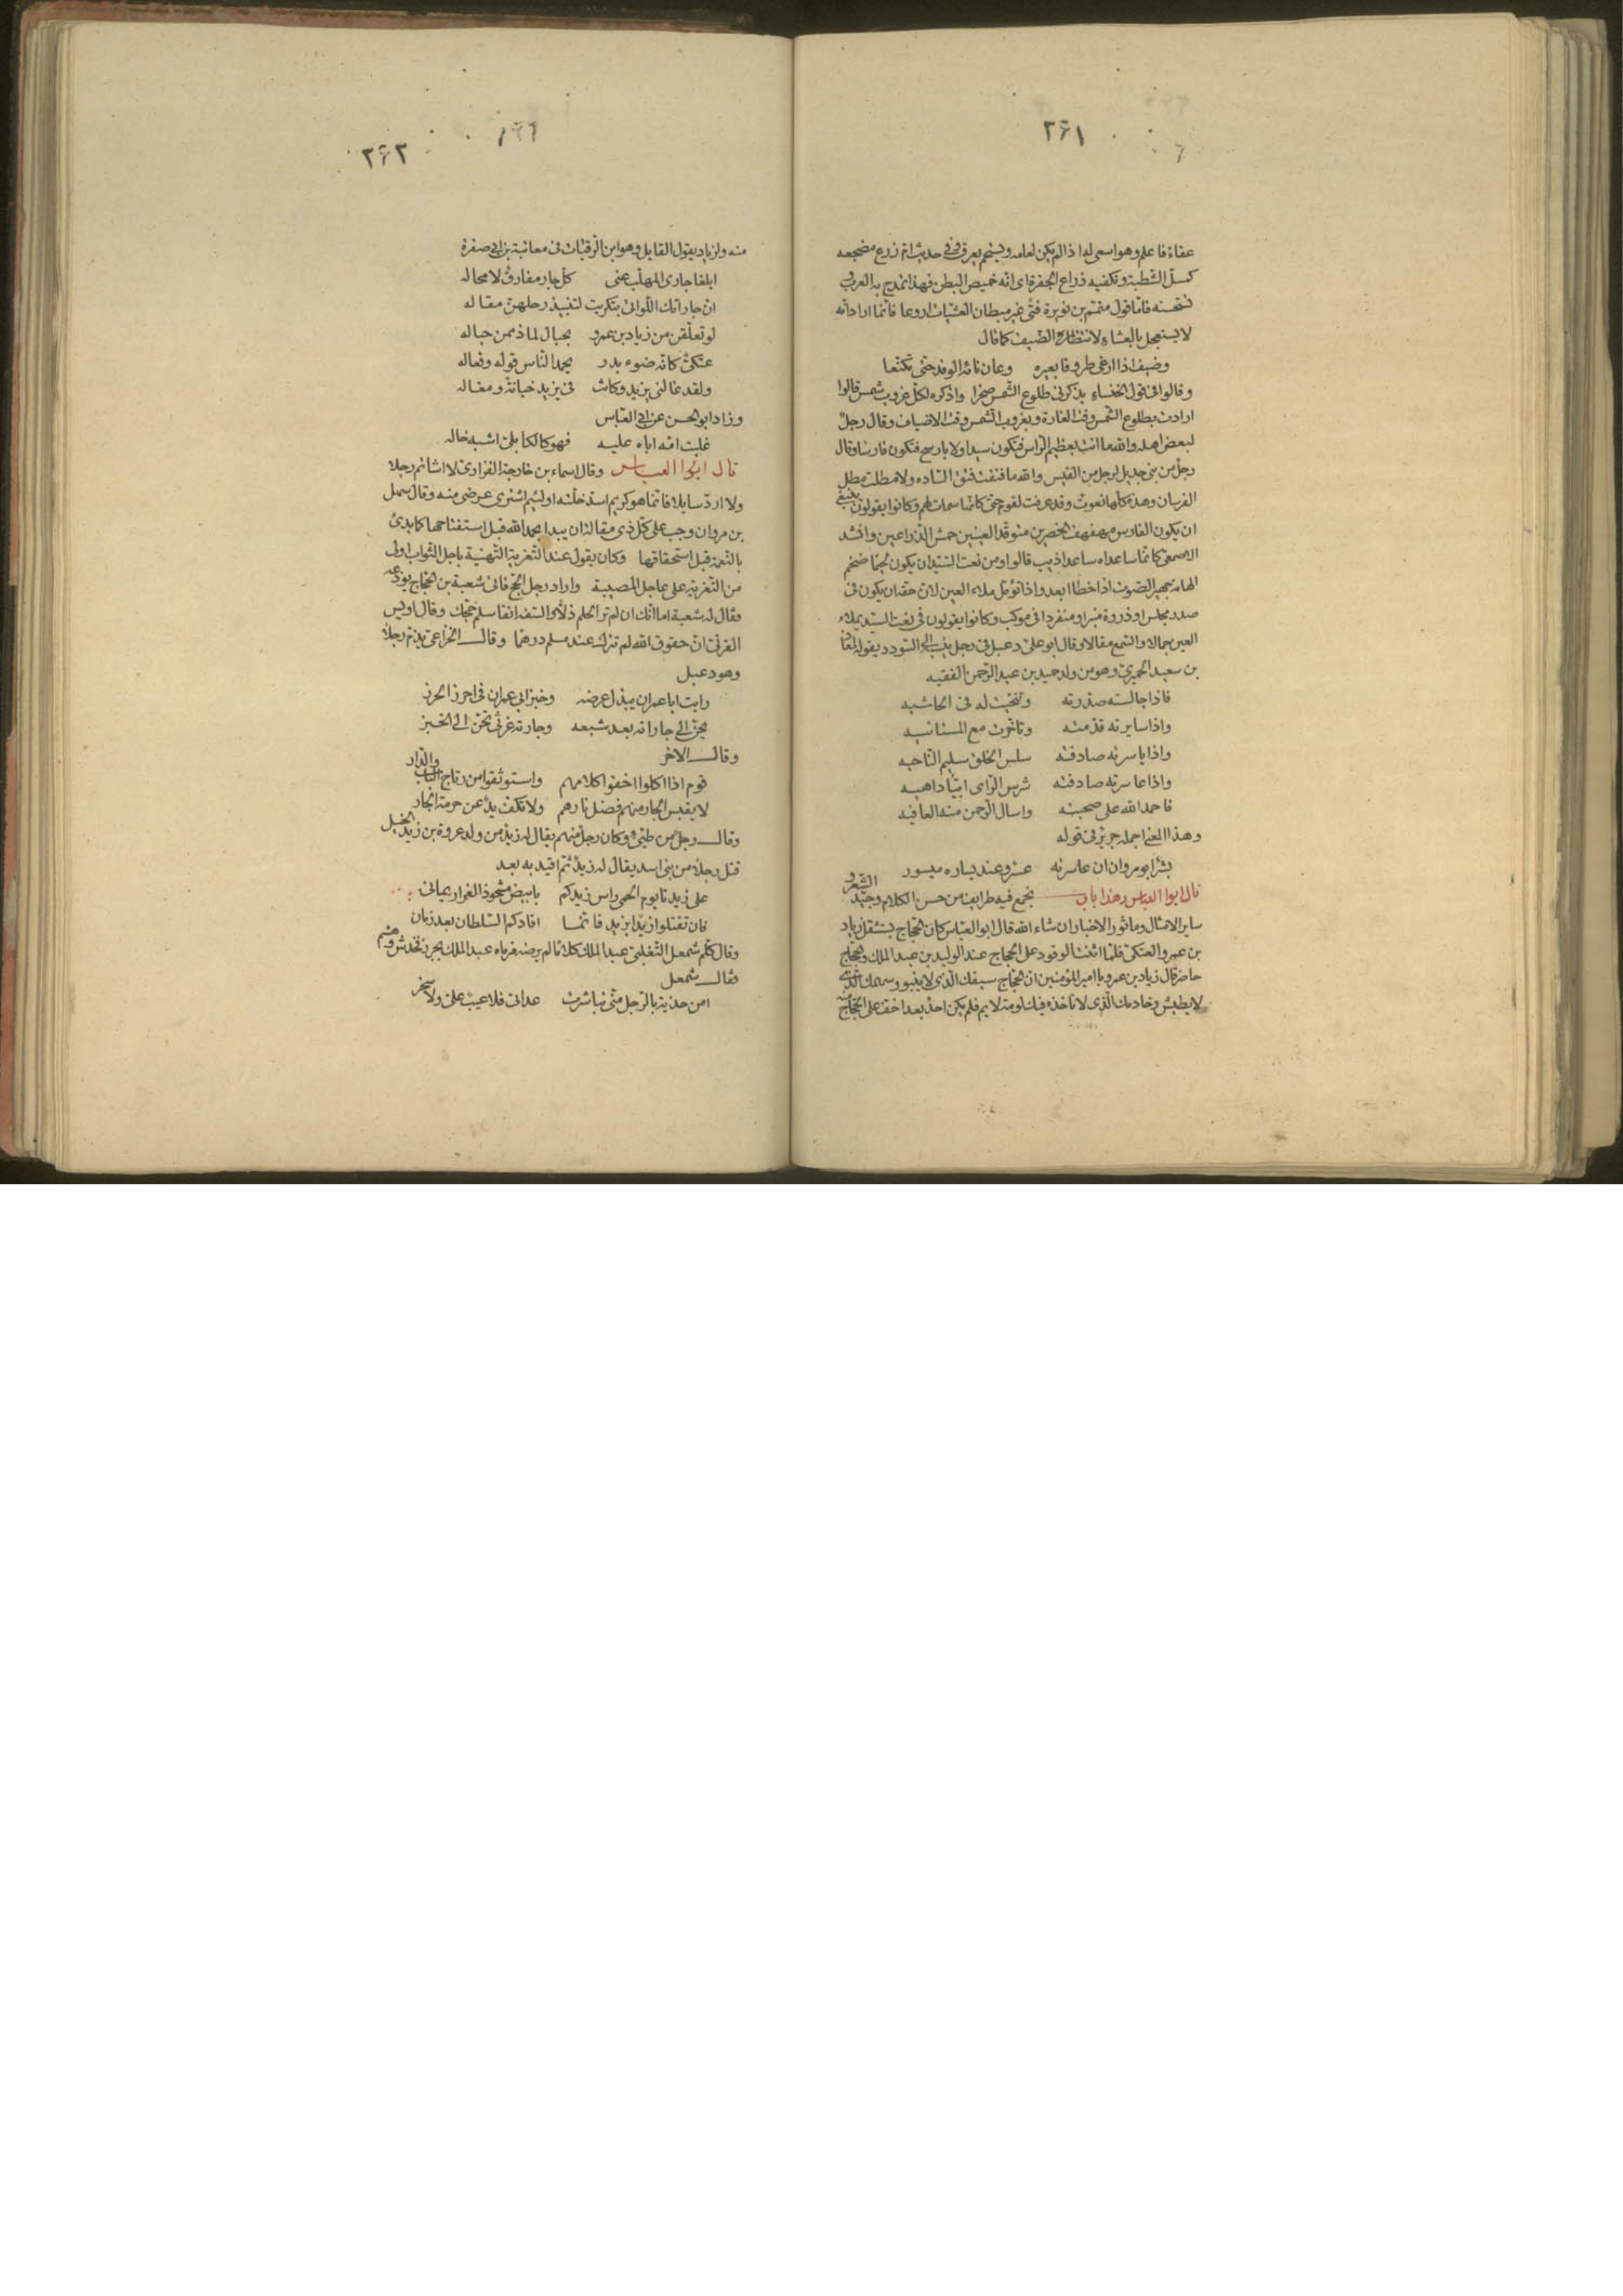 ٢٦١
عفاءً فاعلم وهو اسمى له اذا لم يكن لعامه وبشم يعرق فى حديث ام زرع مضجعه
كمسل الشطبة وتكفيه ذراع الجفرة اى انه خميص البطن فهذا تمدح به العرب و
تستحسنه فاما قول متمم بن نويرة فتى غير مبطان العشيات اروعا فانما اراد انه
لا يستعجل بالعشاء لانتظاره الضيف كما قال
وضيف اذا ارغى طروقا بعيره وعان ثائه الوفد حتى تكنعا
وقالوا فى قول الخنساء يذكرنى طلوع الشمس صخرا واذكره لكل غروب شمس قالوا
ارادت بطلوع الشمس وقت الغارة وبغروب الشمس وقت الاضياف وقال رجل
لبعض اهله والله ما انت بعظيم الراس فتكون سيدا ولا بارسح فتكون فارسا وقال
رجل من بنى جديل لرجل من القيس والله ما فتقت فتق الساده ولا مطلت مطل
الفرسان وهذه كلها نعوت وقد عرفت لقوم حتى كانها سمات لهم وكانوا يقولون ينبغى
ان يكون الفارس مهفهف الخصرين متوقد العينين حمش الذراعين وانشد
الاصمعى كانما ساعداه ساعدا ذيب قالوا ومن نعت السيد ان يكون لحيما ضخم
الهامة جهير الصوت اذا خطا ابعد واذا تؤمل ملاء العين لان حقه ان يكون فى
صدر مجلس او ذروة منبر او منفردا فى موكب وكانوا يقولون فى نعت السيد يملاء
العين جمالا والسمع مقالا وقال ابو على دعبل فى رجل ينسب الى السودد يقوله لمعاذ
بن سعيد الحميرى وهو من ولد حميد بن عبد الرحمن الفقيه
فاذا جالسته صدرته وتنحيت له فى الحاشيه
واذا سايرته قدمته وتاخرت مع المستانيه
واذا ياسرته صادفته سلس الخلق سليم الناحيه
واذا عاسرته صادفته شرس الراى ابيا داهيه
فاحمد الله على صحبته واسال الرحمن منه العافيه
وهذا المعنى اجمله جرير فى قوله
بشر ابو مروان ان عاسرته عسر وعند يساره ميسور
قال ابوا العباس وهذا باب نجمع فيه طرايف من حسن الكلام وجيد الشعر و
ساير الامثال وماثور الاخبار ان شاء الله قال ابو العباس كان الحجاج يستثقل زياد
بن عمرو العتكى فلما اثنت الوفود على الحجاج عند الوليد بن عبد الملك والحجاج
حاضر قال زياد بن عمرو يا امير المؤمنين ان الحجاج سيفك الذى لا ينبو وسهمك الذى
لا يطيش وخادمك الذى لا تاخذه فيك لومة لايم فلم يكن احد بعد اخف على الحجاج
٢٦٢
منه ولزياد يقول القايل وهو ابن الرقيات فى معاتبة بن ابى صفرة
ابلغا جارى المهلب عنى كل جار مفارق لا محاله
ان جاراتك اللواتى بتكريت لتنبيذ رحلهن مقاله
لو تعلقن من زياد بن عمرو بحبال لما ذممن حباله
عتكى كانه ضوء بدر يحمد الناس قوله وفعاله
ولقد غالنى يزيد وكانت فى يزيد خيانة ومغاله
وزاد ابو الحسن عن ابى العباس
غلبت امه اباه عليه فهو كالكابلى اشبه خاله
قال ابوا العباس وقال اسماء بن خارجة الفزارى لا اشاتم رجلا
ولا ارد سايلا فانما هو كريم اسد خلته او لئيم اشترى عرضى منه وقال سهل
بن مروان وجب على كل ذى مقالة ان يبدا بحمد الله قبل استفتاحها كما بدئ
بالنعمة قبل استحقاقها وكان يقول عند التعزية التهنية باجل الثواب اولى
من التعزية على عاجل المصيبة واراد رجل الحج فاتى شعبة بن الحجاج يودعه
فقال له شعبة اما انك ان لم تر الحلم ذلا والسفه انفا سلم حجك وقال اويس
القرنى ان حقوق الله لم تترك عند مسلم درهما وقال الخزاعى يذم رجلا
وهو دعبل
رايت ابا عمران يبذل عرضه وخبز ابى عمران فى احرز الحرز
يحن الى جاراته بعد شبعه وجارته غرثى تحن الى الخبز
وقال الاخر
قوم اذا اكلوا اخفوا كلامهم واستوثقوا من رتاج الباب والدار
لا يقبس الجار منهم فضل نارهم ولا تكف يد عن حرمة الجار
وقال رجل من طيئ وكان رجل منهم يقال له زيد من ولد عروة بن زيد الخيل
قتل رجلا من بنى اسد يقال له زيد ثم اقيد به بعد
على زيدنا يوم الحمى راس زيدكم بابيض مشحوذ الغرار يمانى
فان تقتلوا زيدا بزيد فانما اقادكم السلطان بعد زمان
وقال كلم شمعل التغلبى عبد الملك كلاما لم يرضه فرماه عبد الملك بجرز فخدش وهشم
فقال شمعل
امن حذية بالرجل منى تباشرت عداتى فلا عيب على ولا سخر